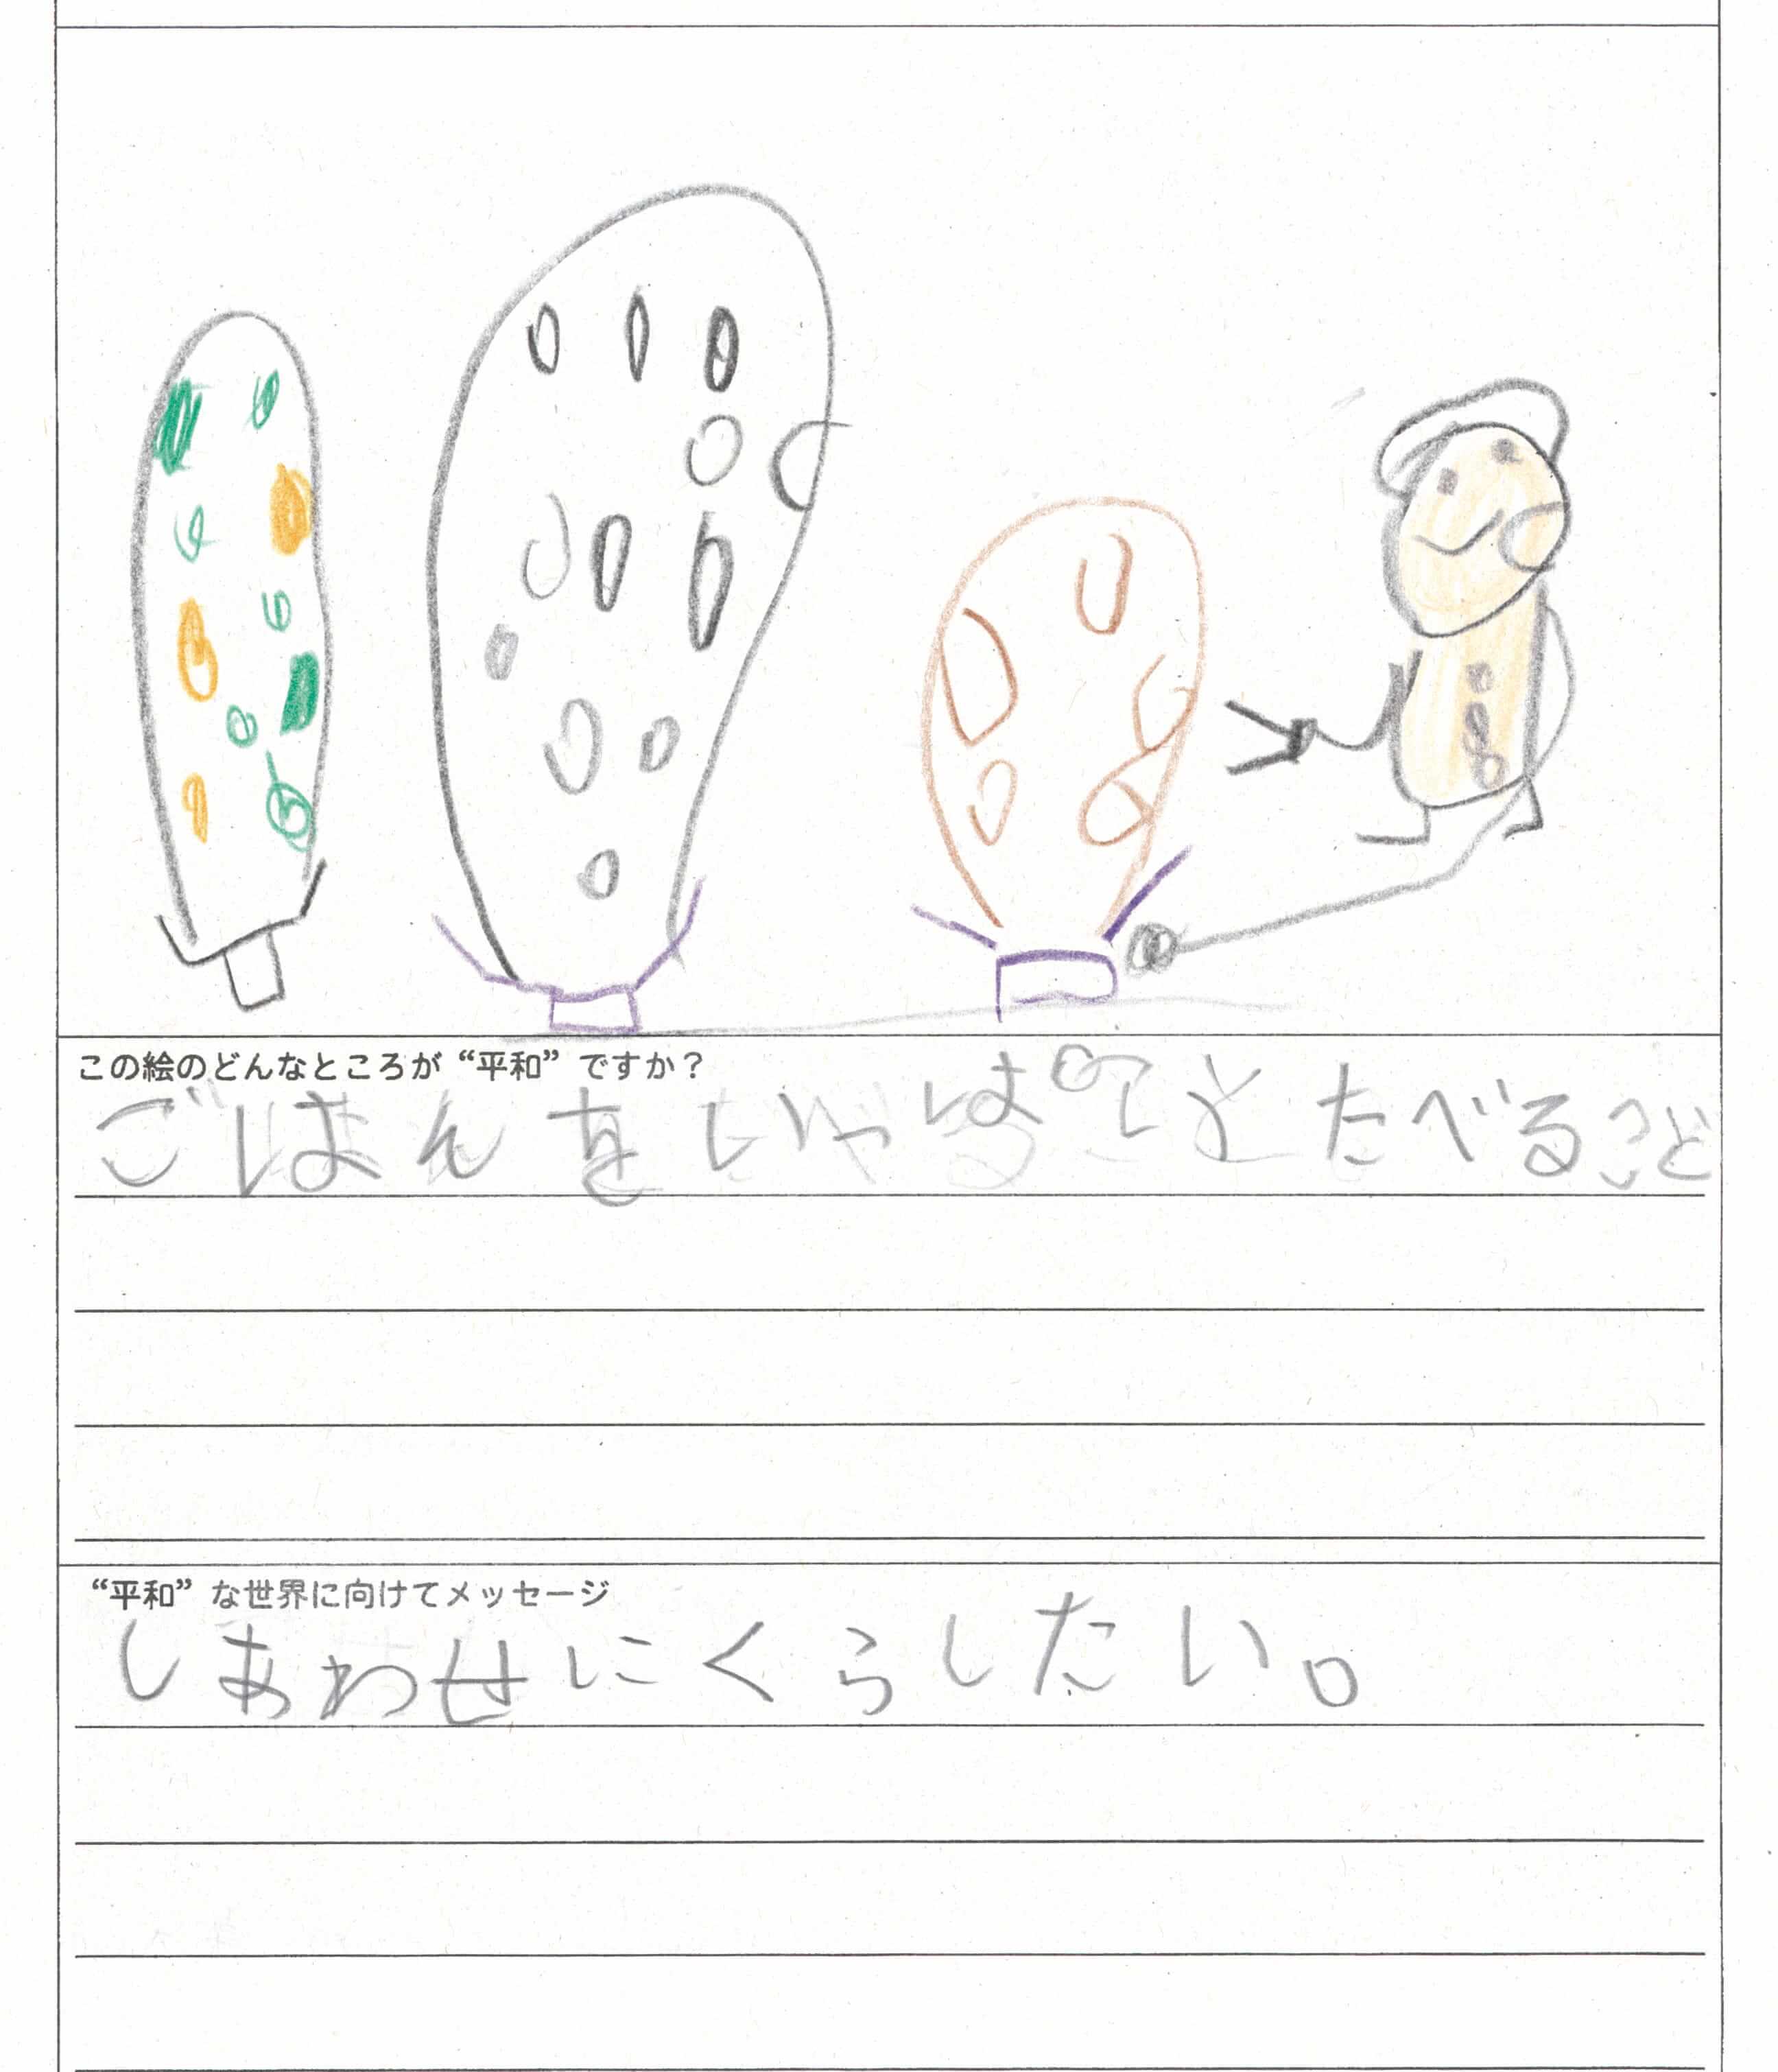 この絵のどんなところが“平和”ですか？
ごはんを と たべること
“平和”な世界に向けてメッセージ
しあわせにくらしたい。